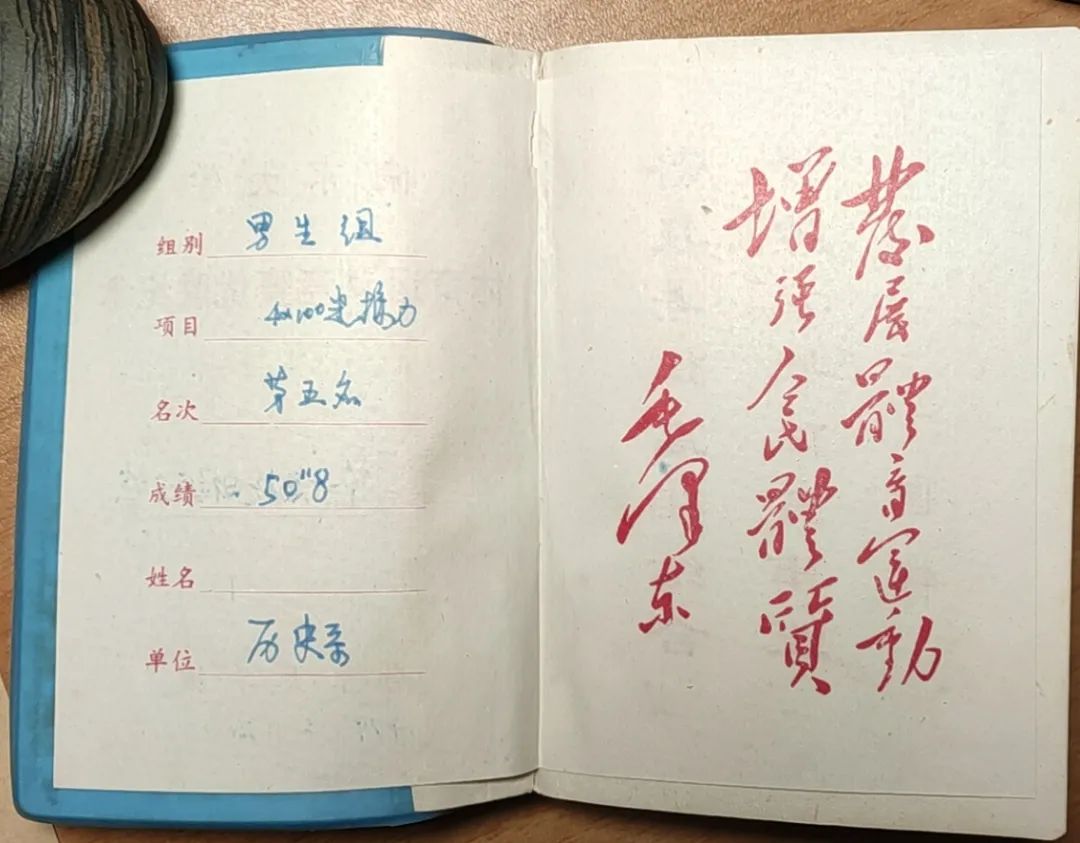 组别 男生组
项目 4x100米接力
名次 第五名
成绩 50"8
姓名
单位 历史系
發展體育運動
增强人民體質
毛泽东